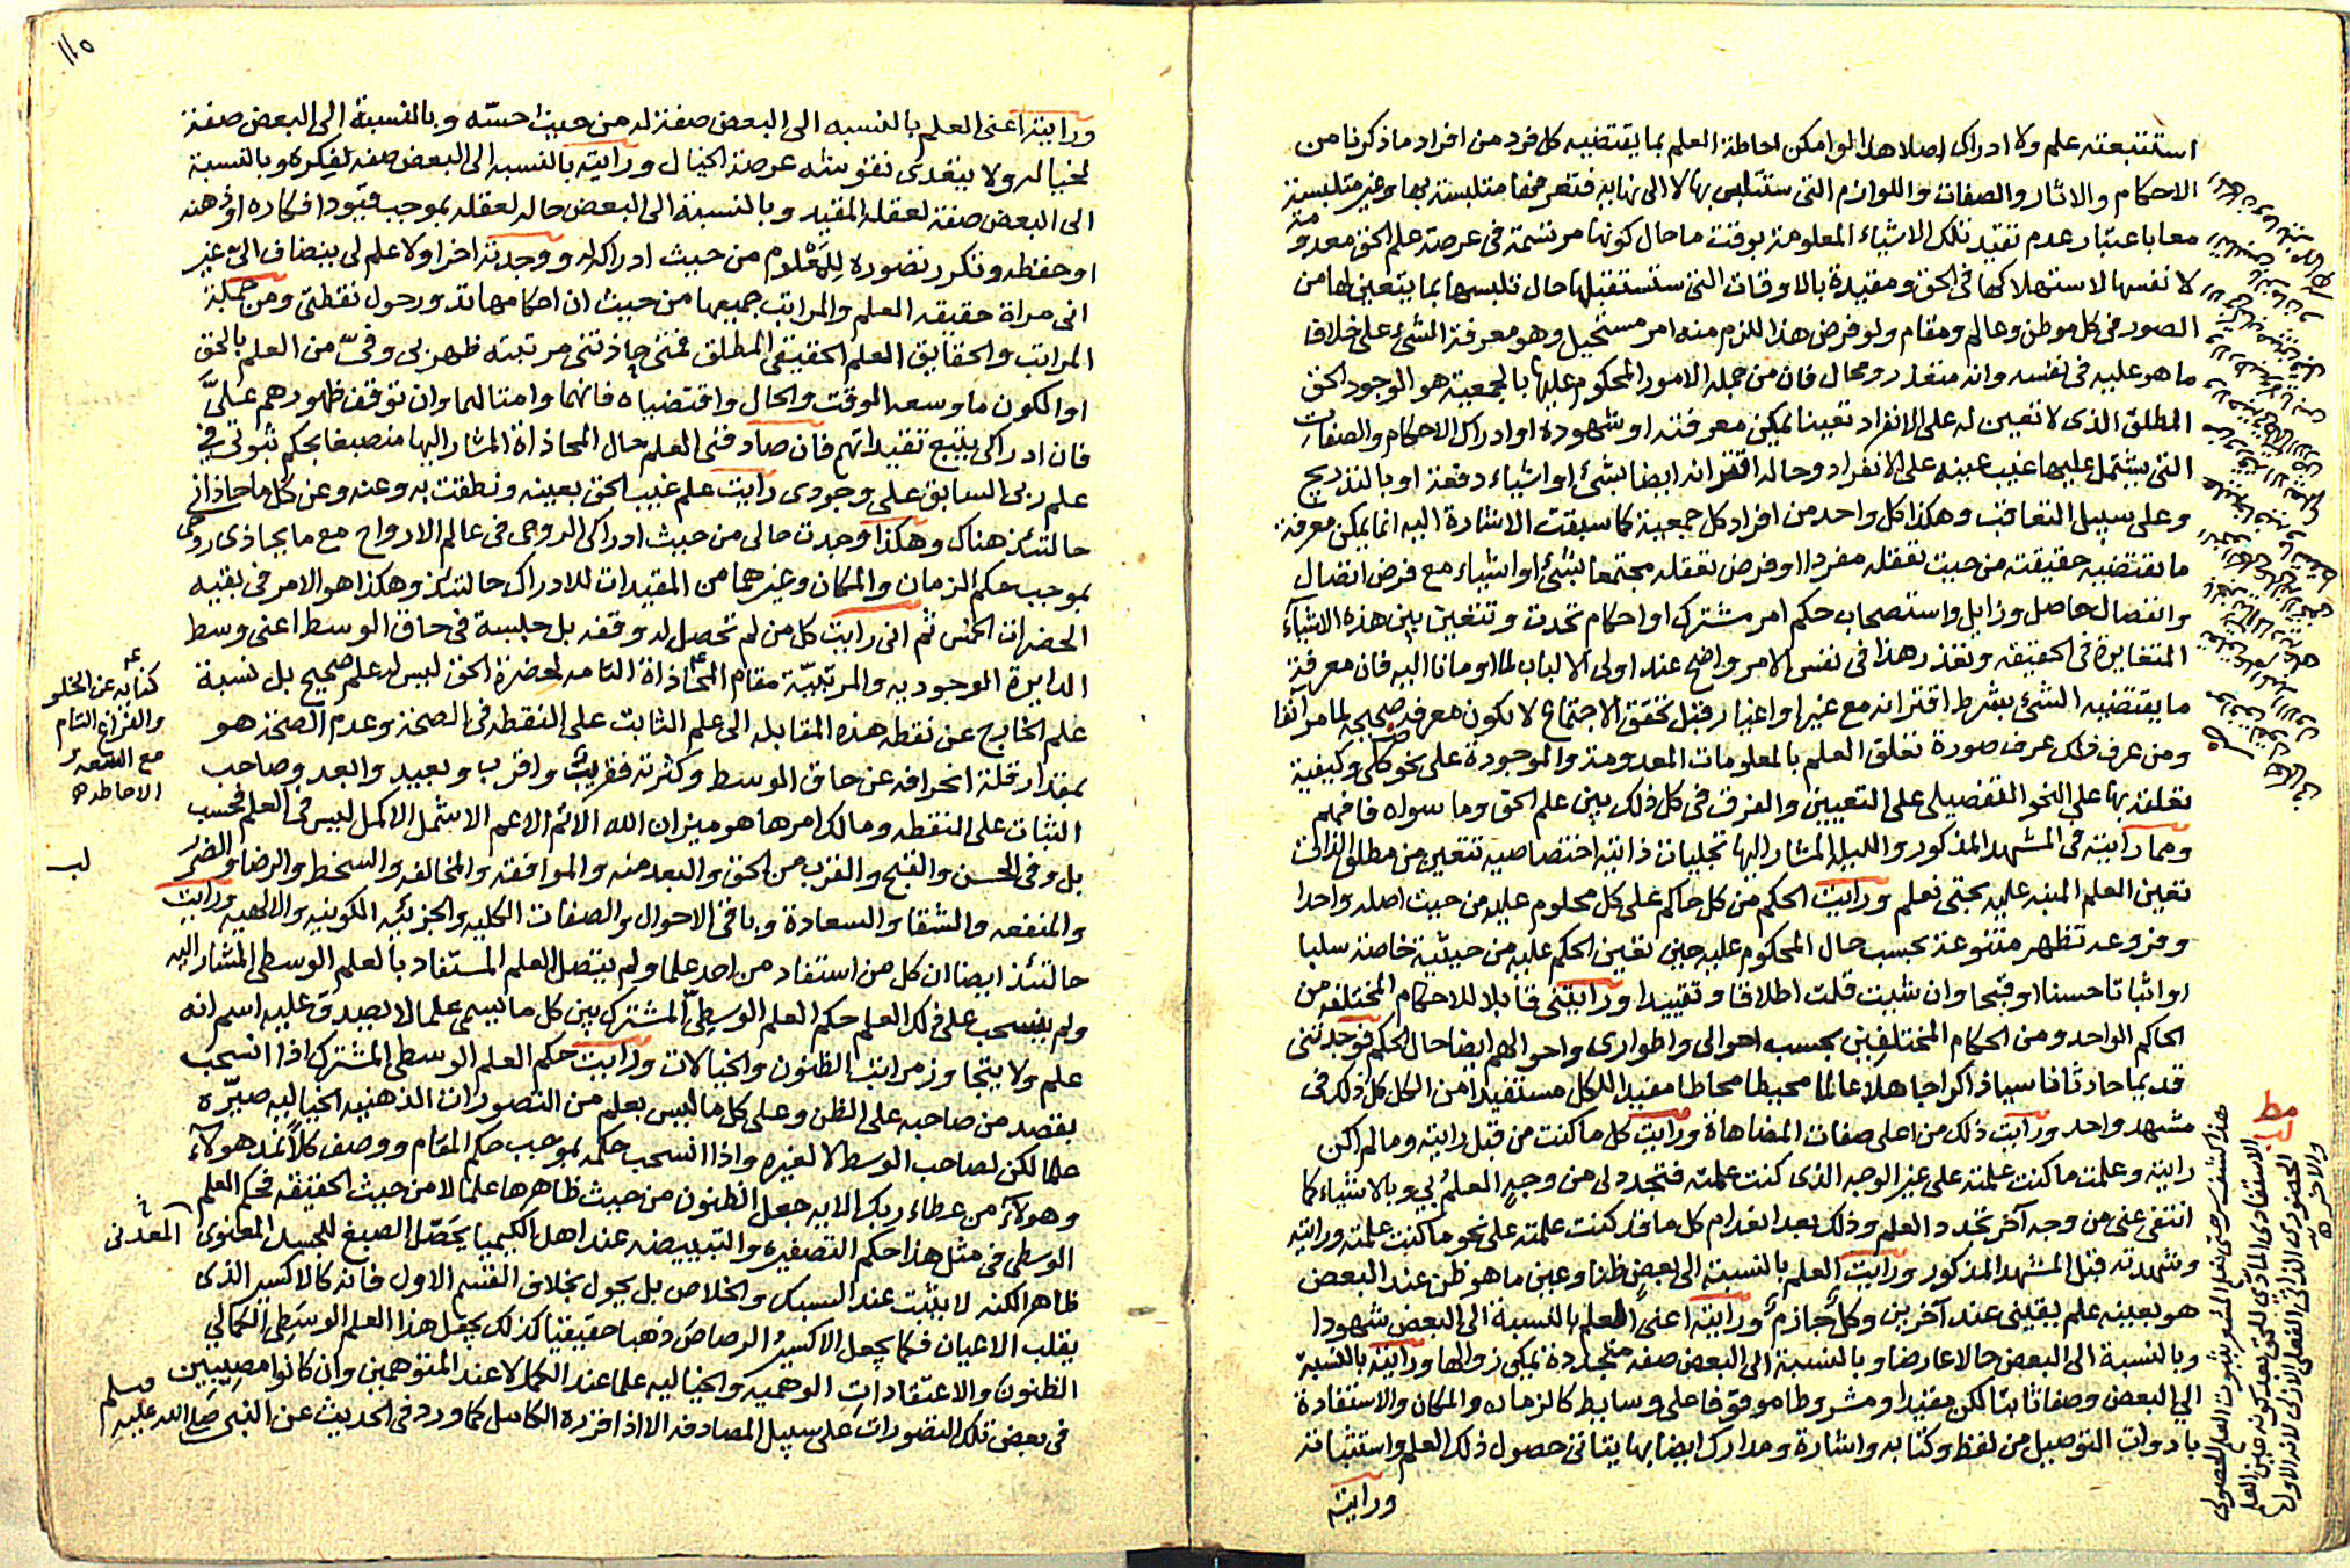 استتبعته علم ولا ادراك اصلا هذا لو امكن احاطة العلم بما يقتضيه كل فرد من افراد ما ذكرنا من
الاحكام والاثار والصفات واللوازم التى ستتلبس بها لا الى نهاية فتعرفها متلبسة بها وغير متلبسة
معا باعتبار عدم تقيد تلك الاشياء المعلومة بوقت ما حال كونها مرتسمة فى عرصة علم الحق معدومة
لا نفسها لاستهلاكها فى الحق ومقيدة بالاوقات التى ستستقبلها حال تلبسها بما يتعين لها من
الصور فى كل موطن وعالم ومقام ولو فرض هذا للزم منه امر مستحيل وهو معرفة الشئ على خلاف
ما هو عليه فى نفسه وانه متعذر ومحال فان من جملة الامور المحكوم عليها بالجمعية هو الوجود الحق
المطلق الذى لا تعين له على الانفراد تعينا يمكن معرفته او شهوده او ادراك الاحكام والصفات
التى يشتمل عليها غيب عينه على الانفراد وحاله اقترانه ايضا بشئ او اشياء دفعة او بالتدريج
وعلى سبيل التعاقب وهكذا كل واحد من افراد كل جمعية كما سبقت الاشارة اليه انما يمكن معرفة
ما تقتضيه حقيقته من حيث تعقله مفردا او فرض تعقله مجتمعا بشئ او اشياء مع فرض اتصال
وانفصال حاصل وزايل واستصحاب حكم امر مشترك او احكام تحدث وتتعين بين هذه الاشياء
المتغايرة فى الحقيقة وتعذر هذا فى نفس الامر واضح عند اولى الالباب لما اومانا اليه فان معرفة
ما يقتضيه الشئ بشرط اقترانه مع غير او اغيار قبل تحقق الاجتماع لا يكون معرفة صحيحة لما مر آنفا
ومن عرف ذلك عرف صورة تعلق العلم بالمعلومات المعدومة والموجودة على نحو كلى وكيفية
تعلقه بها على النحو التفصيلى على التعيين والفرق فى كل ذلك بين علم الحق وما سواه فافهم
ومما رايته فى المشهد المذكور والليلة المشار اليها تجليات ذاتية اختصاصيه تتعين من مطلق الذات
تعين العلم المنبه عليه بحتى نعلم ورايت الحكم من كل حاكم على كل محكوم عليه من حيث اصله واحدا
وفروعه تظهر متنوعة بحسب حال المحكوم عليه حين تعين الحكم عليه من حيثية خاصة سلبا
او اثباتا حسنا او قبحا وان شيت قلت اطلاقا وتقييدا ورايتنى قابلا للاحكام المختلفة من
الحاكم الواحد ومن الحكام المختلفين بحسب احوالى واطوارى واحوالهم ايضا حال الحكم فوجدتنى
قديما حادثا ناسيا ذاكرا جاهلا عالما محيطا محاطا مفيدا للكل مستفيدا من الكل كل ذلك فى
مشهد واحد ورايت ذلك من اعلى صفات المضاهاة ورايت كل ما كنت من قبل رايته وما لم اكن
رايته وعلمت ما كنت علمته على غير الوجه الذى كنت علمته فتجدد لى من وجه العلم بى وبالاشياء كما
انتفى عنى من وجه آخر تجدد العلم وذلك بعد انعدام كل ما قد كنت علمته على نحو ما كنت علمته ورايته
وشهدته قبل المشهد المذكور ورايت العلم بالنسبة الى بعض ظنا وعين ما هو ظن عند البعض
هو بعينه علم يقينى عند آخرين وكل جازم ورايته اعنى العلم بالنسبة الى البعض شهودا
وبالنسبة الى البعض حالا عارضا وبالنسبة الى البعض صفة متجددة يمكن زوالها ورايته بالنسبة
الى البعض وصفا ثابتا لكن مقيدا ومشروطا موقوفا على وسايط كالزمان والمكان والاستفادة
بادوات التوصيل من لفظ وكتابه واشارة ومدارك ايضا بها يتاتى حصول ذلك العلم واستثباته
ورايته
مط
لب
هذا كشف سر حتى نعلم المشعر بثبوت العلم الحصولى
الاستفادى المادى للحق بعد كونه عين العلم
الحضورى الذاتى الفعلى الازلى لانه الاول
والاخر
١١٥
ورايته اعنى العلم بالنسبه الى البعض صفة له من حيث حسّه وبالنسبة الى البعض صفة
لخياله ولا يتعدى تقوسه عرصة الخيال ورايته بالنسبه الى البعض صفه لفكره وبالنسبة
الى البعض صفة لعقله المقيد وبالنسبة الى البعض حاله لعقله بموجب قيود افكاره او ذهنه
او حفظه وتكرر تصوره للمعلوم من حيث ادراكه له ووجدته اخرا ولا علم لى ينضاف الىّ غير
انى مراة حقيقه العلم والمراتب جميعها من حيث ان احكامها تدور حول نقطتى ومن جملة
المراتب والحقايق العلم الحقيقى المطلق فمتى حاذتنى مرتبته ظهر بى وفىّ من العلم بالحق
او الكون ما وسعه الوقت والحال واقتضياه فانهما وامثالهما وان توقف ظهورهم علىّ
فان ادراكى يتبع تقيداتهم فان صادفنى العلم حال المحاذاة المشار اليها منصبغا بحكم ثبوتى فى
علم ربى السابق على وجودى رايت علم غيب الحق بعينه ونطقت به وعنه وعن كل ما حاذانى
حالتئذ هناك وهكذا وجدت حالى من حيث ادراكى الروحى فى عالم الارواح مع ما يحاذى روحى
بموجب حكم الزمان والمكان وغيرهما من المقيدات للادراك حالتئذ وهكذا هو الامر فى بقيه
الحضرات الخمس ثم انى رايت كل من لم تحصل له وقفه بل جلسة فى حاق الوسط اعنى وسط
الدايرة الوجوديه والمرتبيّة مقام المحاذاة التامه لحضرة الحق ليس له علم صحيح بل نسبة
علم الخارج عن نقطه هذه المقابله الى علم الثابت على النقطه فى الصحة وعدم الصحة هو
بمقدار قلة انحرافه عن حاق الوسط وكثرته فقريب واقرب وبعيد وابعد وصاحب
الثبات على النقطه ومالك امرها هو ميزان الله الاتم الاعم الاشمل الاكمل ليس فى العلم فحسب
بل وفى الحسن والقبح والقرب من الحق والبعد منه والموافقه والمخالفه والسخط والرضا والضر
والمنفعه والشقا والسعادة وباقى الاحوال والصفات الكليه والجزئيه الكونيه والالهيه ورايت
حالتئذ ايضا ان كل من استفاد من احد علما ولم يتصل العلم المستفاد بالعلم الوسطى المشار اليه
ولم ينسحب على ذلك العلم حكم العلم الوسطىّ المشترك بين كل ما يسمى علما لا يصدق عليه اسم انه
علم ولا يتجاوز مراتب الظنون والخيالات ورايت حكم العلم الوسطى المشترك اذا انسحب
بقصد من صاحبه على الظن وعلى كل ما ليس بعلم من التصورات الذهنيه الخياليه صيّره
علما لكن لصاحب الوسط لا لغيره واذا انسحب حكمه بموجب حكم المقام ووصف كلاً نمد هولاء
وهولاء من عطاء ربك الابه جعل الظنون من حيث ظاهرها علما لا من حيث الحقيقه فحكم العلم
الوسطى فى مثل هذا حكم التصفيره والتبييضه عند اهل الكيميا يحصّل الصبغ للجسد المعنوى
ظاهرا لكنه لا يثبت عند السبك والخلاص بل يحول بخلاف القسم الاول فانه كالاكسير الذى
يقلب الاعيان فكما يجعل الاكسير الرصاص ذهبا حقيقيا كذلك يجعل هذا العلم الوسطى الكمالى
الظنون والاعتقادات الوهميه والخياليه علما عند الكمل لا عند المتوهمين وان كانوا مصيبين
فى بعض تلك التصورات على سبيل المصادفه الا اذا اقره الكامل كما ورد فى الحديث عن النبى صلى الله عليه وسلم
كنايه عن الخلو
والفراغ التام
مع السعه
الاحاطه
لب
المعدنى